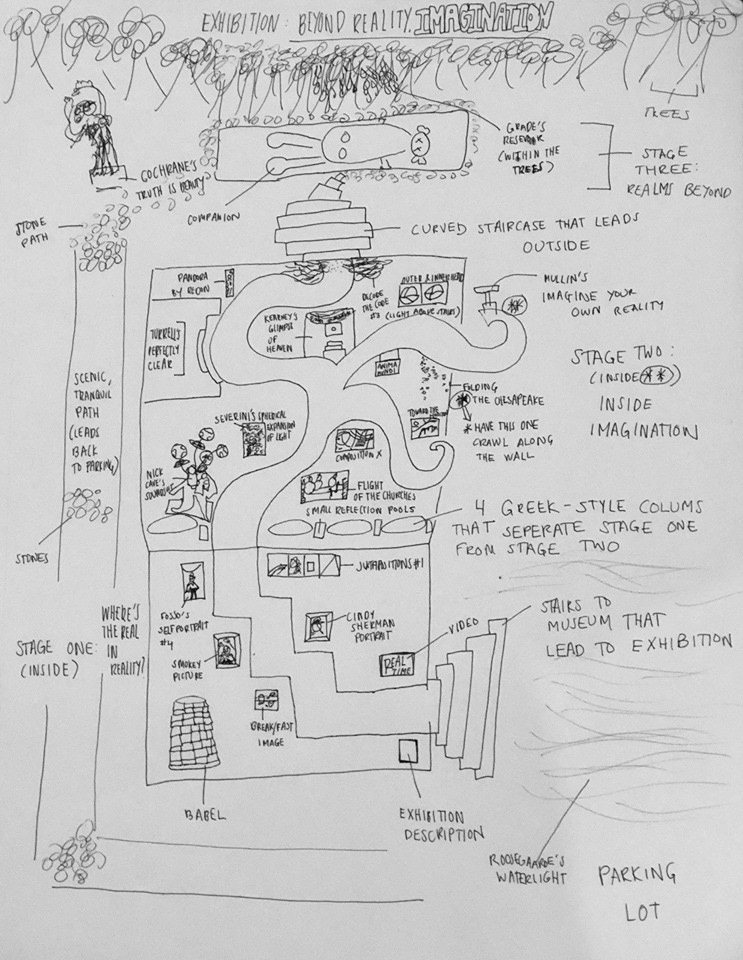 EXHIBITION: BEYOND REALITY, IMAGINATION
TREES
GRADE'S
RESERVOIR
(WITHIN THE
TREES)
STAGE
THREE:
REALMS BEYOND
COCHRANE'S
TRUTH IS BEAUTY
COMPANION
STONE
PATH
CURVED STAIRCASE THAT LEADS
OUTSIDE
PANDORA
BY RECON
DECODE
THE CODE
#3 (LIGHT ABOVE STAIRS)
OUTER & INNER
MULLIN'S
IMAGINE YOUR
OWN REALITY
KEARNEY'S
GLIMPSE
OF
HEAVEN
TURRELL'S
PERFECTLY
CLEAR
ANIMA
MUNDI
STAGE TWO:
(INSIDE **)
INSIDE
IMAGINATION
SCENIC,
TRANQUIL
PATH
(LEADS
BACK
TO PARKING)
FOLDING
THE CHESAPEAKE
* HAVE THIS ONE
CRAWL ALONG
THE WALL
TOWARD THE
SEVERINI'S SPHERICAL
EXPANSION
OF LIGHT
COMPOSITION X
NICK
CAVE'S
SOUNDSUIT
FLIGHT
OF THE CHURCHES
SMALL REFLECTION POOLS
4 GREEK-STYLE COLUMS
THAT SEPERATE STAGE ONE
FROM STAGE TWO
STONES
JUXTAPOSITIONS #1
FOSSO'S
SELF PORTRAIT
#4
CINDY
SHERMAN
PORTRAIT
VIDEO
STAIRS TO
MUSEUM THAT
LEAD TO EXHIBITION
STAGE ONE:
(INSIDE)
WHERE'S
THE REAL
IN
REALITY?
SMOKEY
PICTURE
REAL
TIME
BREAK/FAST
IMAGE
BABEL
EXHIBITION
DESCRIPTION
ROOSEGAARDE'S
WATERLIGHT
PARKING
LOT